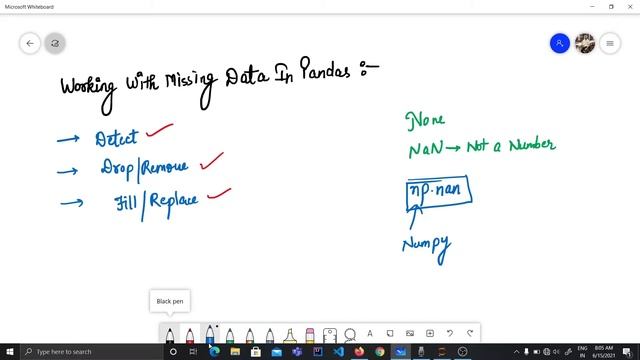 Microsoft Whiteboard
Working With Missing Data In Pandas :-
→ Detect
→ Drop/Remove
→ Fill/Replace
None
NaN → Not a Number
np.nan
Numpy
Black pen
Type here to search
ENG
IN
8:05 AM
6/15/2021